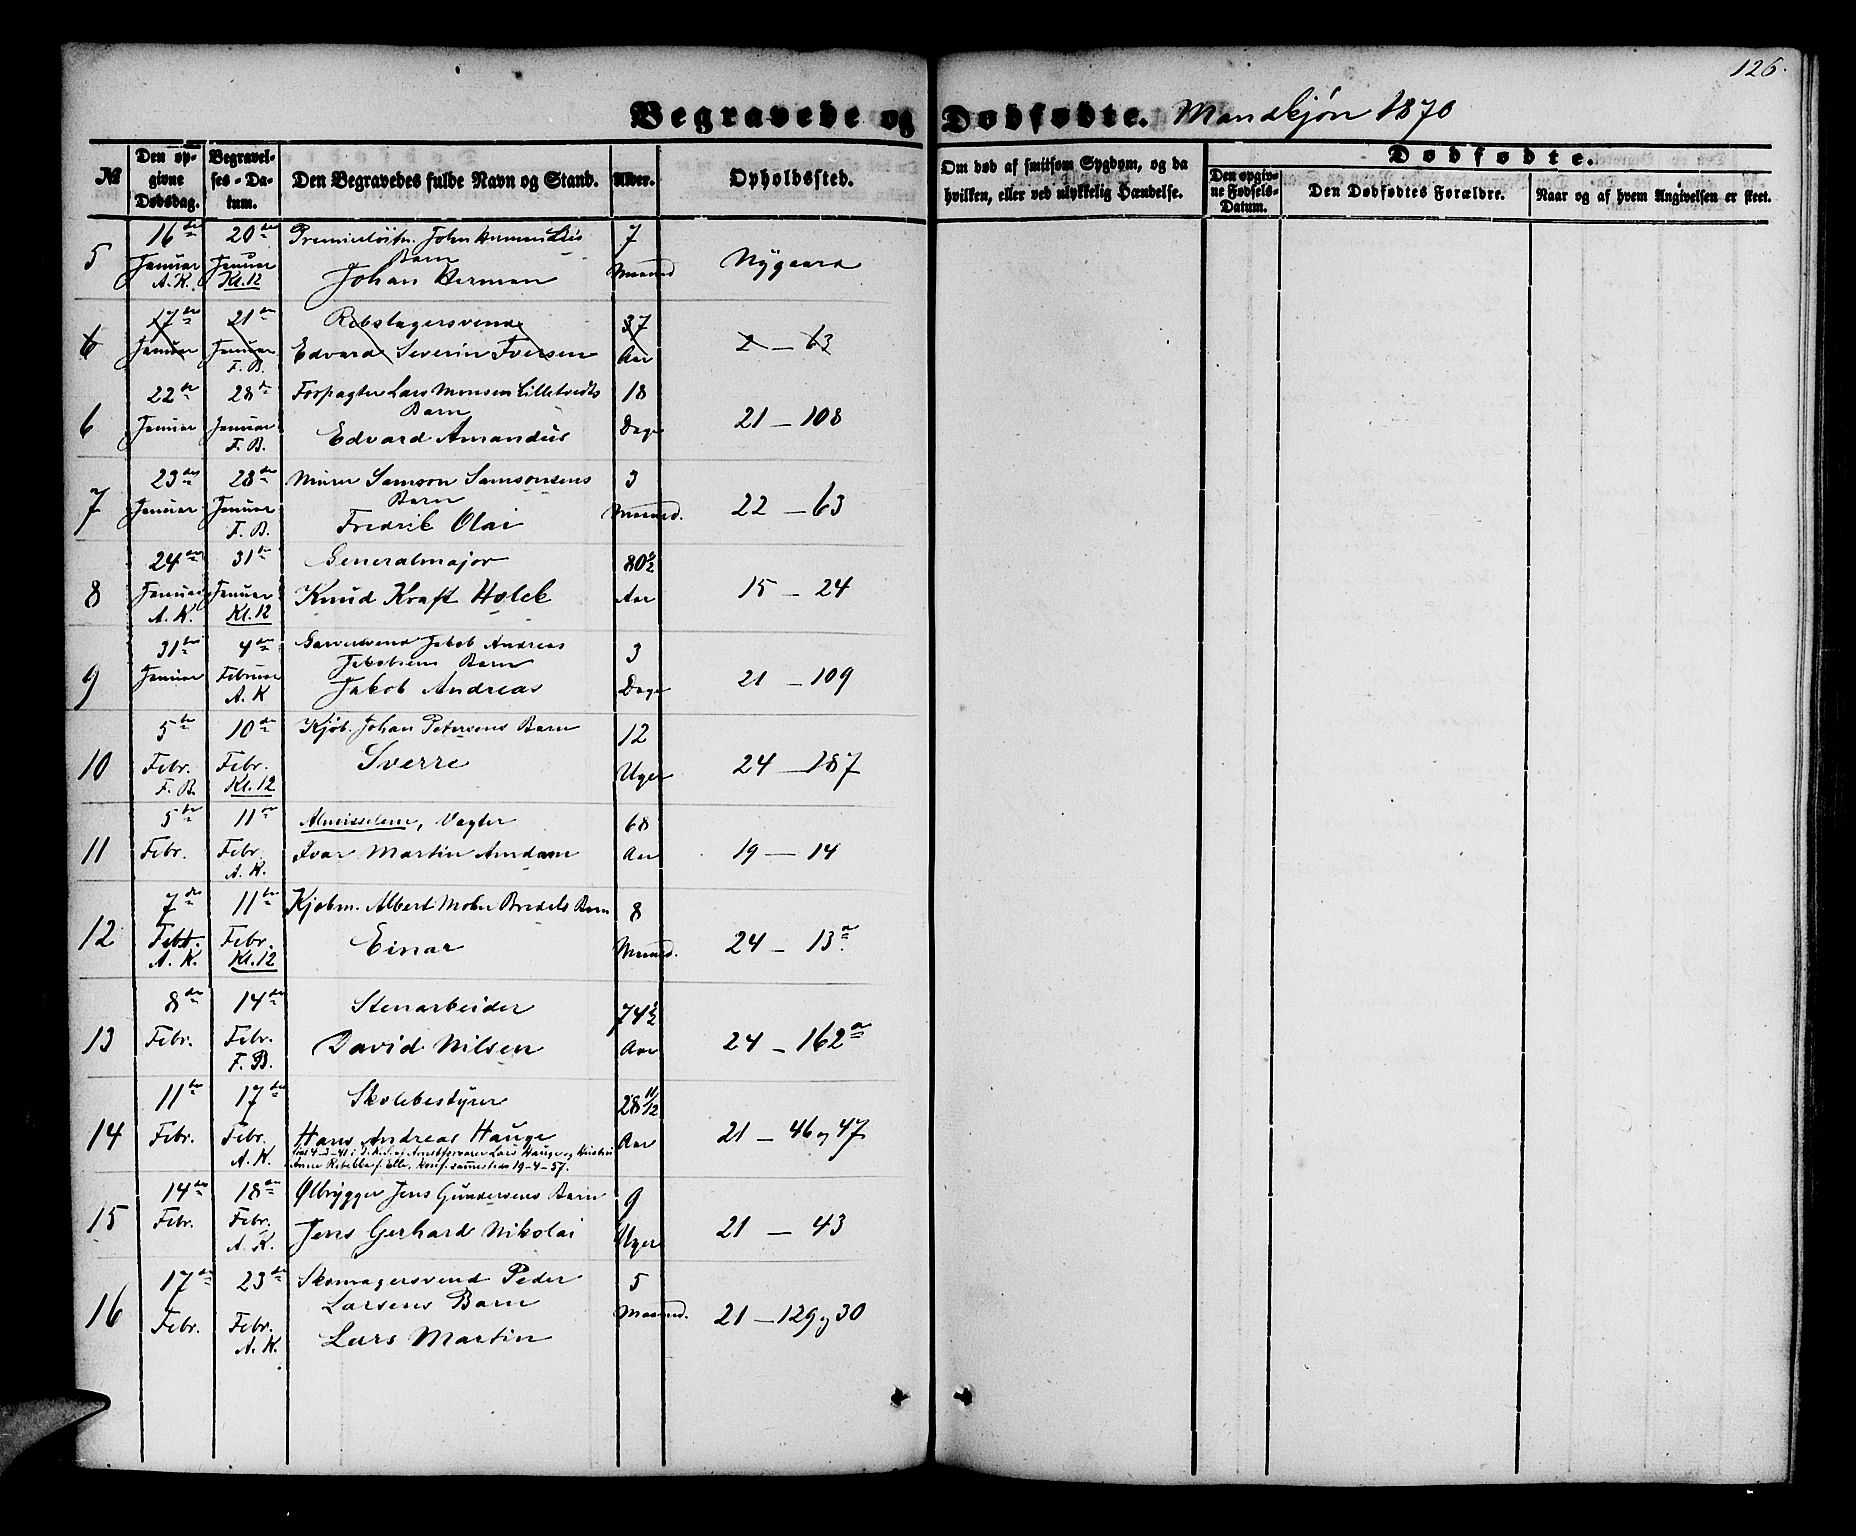 126.
Begravede og Dødfødte. Mandkjøn 1870
№ Den opgivne Dødsdag. Begravelses-Datum. Den Begravedes fulde Navn og Stand. Alder. Opholdssted. Om død af smitsom Sygdom, og da hvilken, eller ved ulykkelig Hændelse. Dødfødte. Den opgivne Fødsels-Datum. Den Dødfødtes Forældre. Naar og af hvem Angivelsen er skeet.
5 16de Januar A. K. 20de Januar Kl. 12 John Herman Barn Johan Herman 7 Maaned Nygaard
6 17de Januar 21de Januar F. B. Rebslagersvend Edvard Severin Iversen 37 Aar 2 — 63
6 22de Januar 28de Januar F. B. Forpagter Lars Monsen Lilletvedts Barn Edvard Amandus 18 Dage 21 — 108
7 23de Januar 28de Januar F. B. Murer Samson Samsonsens Barn Fredrik Olai 3 Maaned. 22 — 63
8 24de Januar A. K. 31te Januar Kl. 12 Generalmajor Knud Kraft Holck 80½ Aar 15 — 24
9 31te Januar 4de Februar A. K Garversvend Jakob Andreas Jakobsens Barn Jakob Andreas 3 Dage 21 — 109
10 5te Febr. F. B. 10de Febr. Kl. 12 Kjøb. Johan Petersens Barn Sverre 12 Uger 24 — 187
11 5te Febr. 11te Febr. A. K. Almisselem, Vagter Ivar Martin Amdam 68 Aar 19 — 14
12 7de Febr. A. K. 11te Febr. Kl. 12 Kjøbm. Albert Mohr Bredals Barn Einar 8 Maaned. 24 — 13a
13 8de Febr. 14de Febr. F. B. Stenarbeider David Nilsen 74½ Aar 24 — 162a
14 11te Febr. 17de Febr. A. K. Skolebestyrer Hans Andreas Hauge 28 11/12 Aar 21 — 46 og 47
Lars Hauge og
Anne f. Elle, konf. sammesteds 19-4-57.
15 14de Febr. 18de Febr. A. K. Ølbrygger Jens Gundersens Barn Jens Gerhard Nikolai 9 Uger 21 — 43
16 17de Febr. 23de Febr. A. K. Skomagersvend Peder Larsens Barn Lars Martin 5 Maaned. 21 — 129 og 30